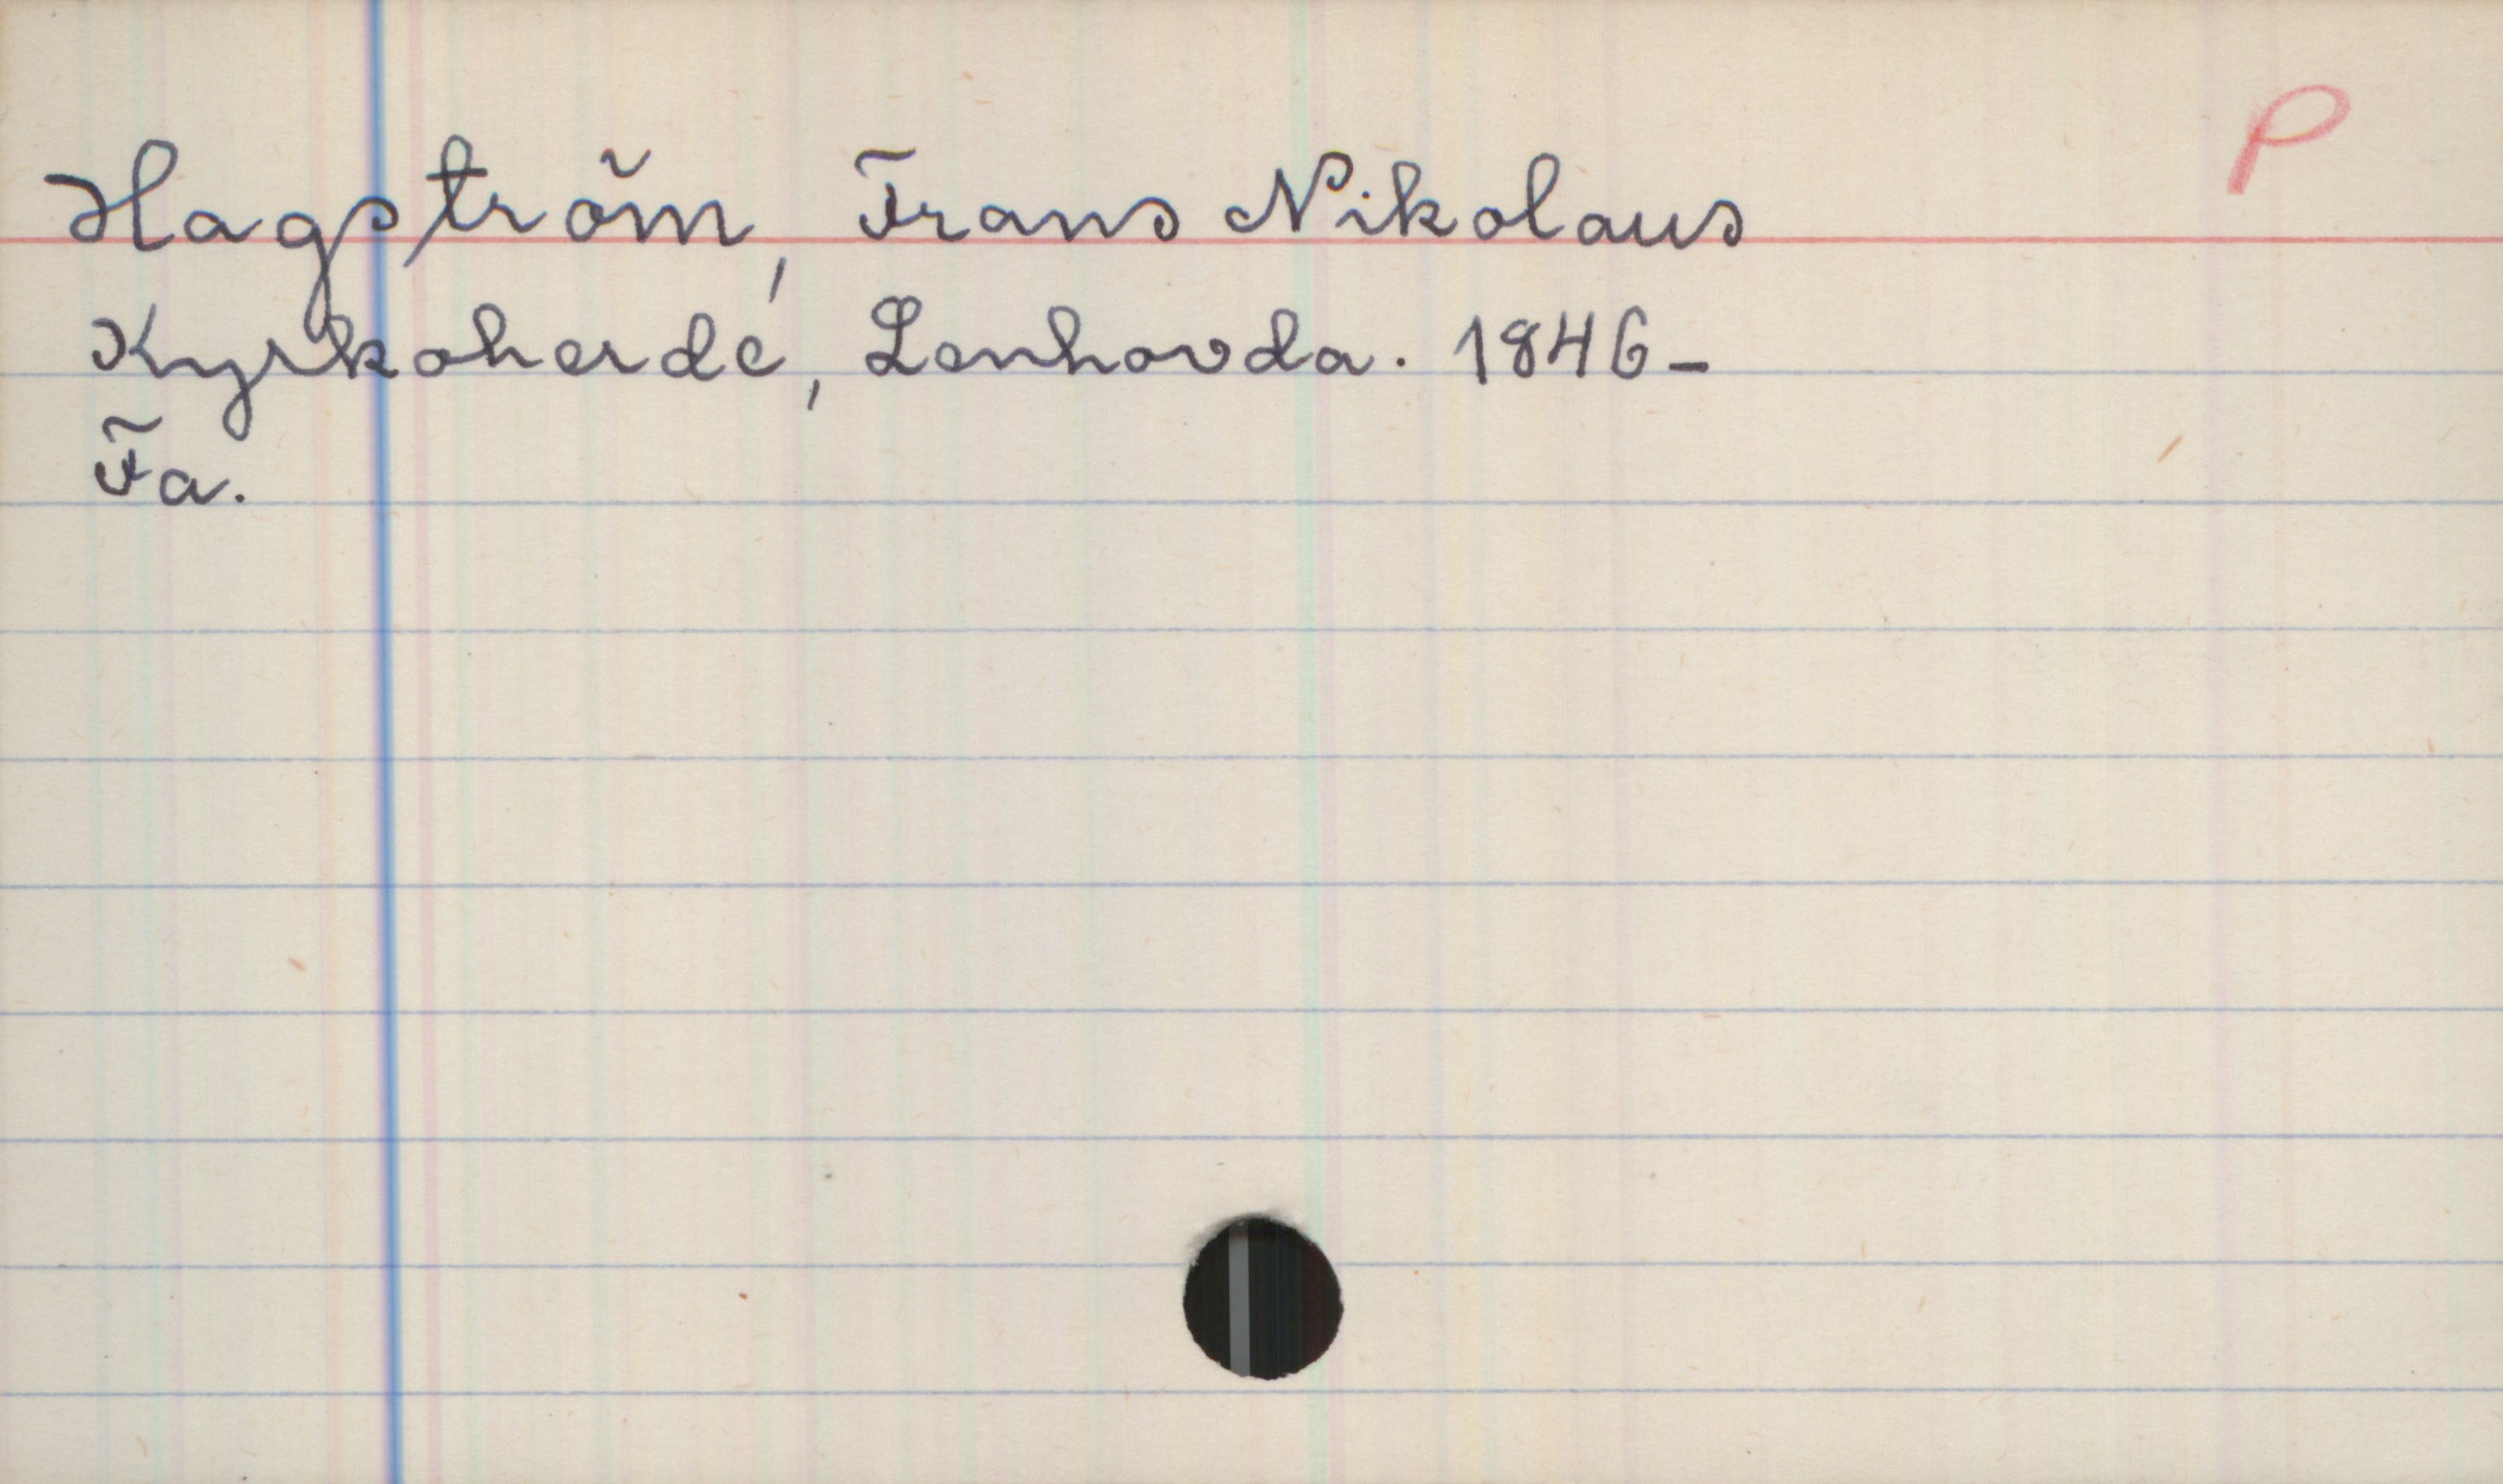 P
Hagström, Frans Nikolaus
Kyrkoherde, Lenhovda. 1846-
Fa.